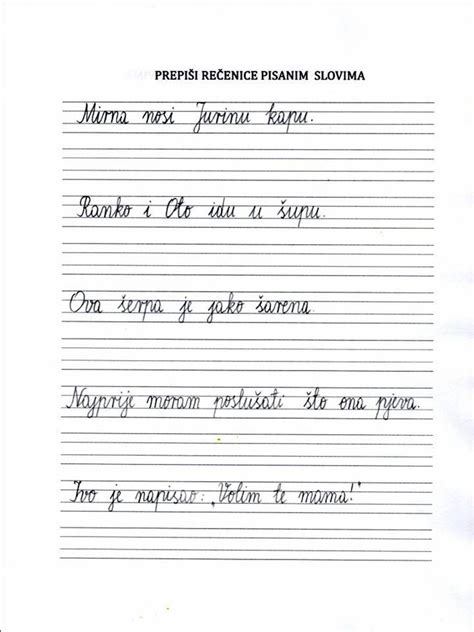 PREPIŠI REČENICE PISANIM SLOVIMA
Mirna nosi Jurinu kapu.
Ranko i Oto idu u šupu.
Ova šerpa je jako šarena.
Najprije moram poslušati što ona pjeva.
Ivo je napisao: „Volim te mama!"